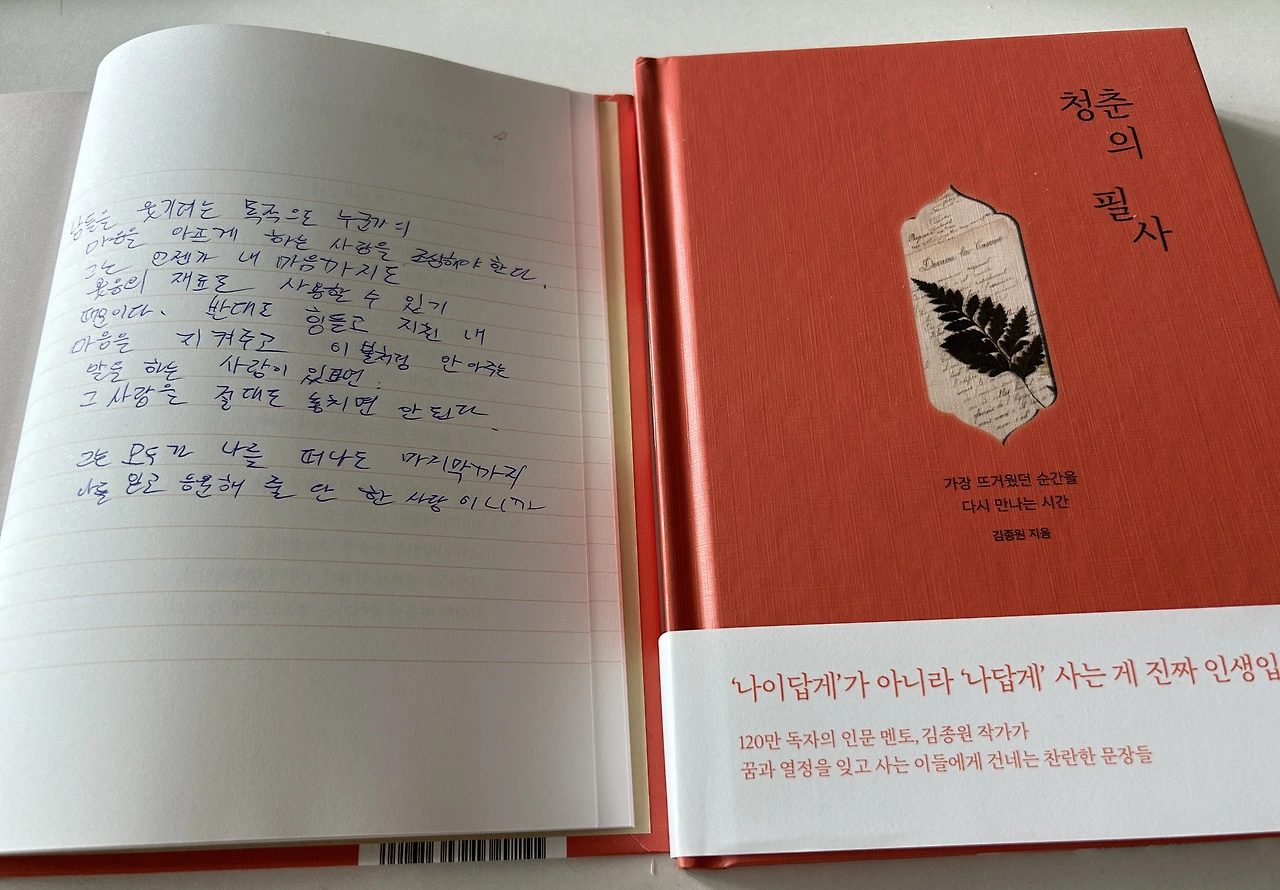 남들을 웃기려는 목적으로 누군가의
마음을 아프게 하는 사람을 조심해야 한다.
그는 언젠가 내 마음까지도
웃음의 재료로 사용할 수 있기
때문이다. 반대로 힘들고 지친 내
마음을 지켜주고 이불처럼 안아주는
말을 하는 사람이 있다면.
그 사람을 절대로 놓치면 안 된다.
그는 모두가 나를 떠나도 마지막까지
나를 믿고 응원해 줄 단 한 사람이니까
청춘
의
필
사
가장 뜨거웠던 순간을
다시 만나는 시간
김종원 지음
‘나이답게’가 아니라 ‘나답게’ 사는 게 진짜 인생입
120만 독자의 인문 멘토, 김종원 작가가
꿈과 열정을 잊고 사는 이들에게 건네는 찬란한 문장들